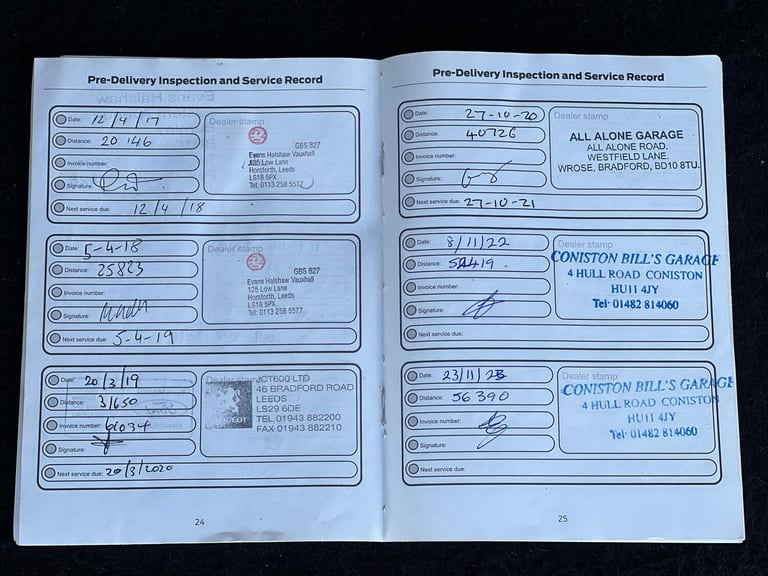 Pre-Delivery Inspection and Service Record
Date: 12/4/17
Distance: 20 146
Invoice number:
Signature:
Next service due: 12/4/18
Dealer stamp
GBS 827
Evans Halshaw Vauxhall
125 Low Lane
Horsforth, Leeds
LS18 5PX
Tel: 0113 258 5577
Date: 5-4-18
Distance: 25823
Invoice number:
Signature:
Next service due: 5-4-19
Dealer stamp
GBS 827
Evans Halshaw Vauxhall
125 Low Lane
Horsforth, Leeds
LS18 5PX
Tel: 0113 258 5577
Date: 20/3/19
Distance: 31650
Invoice number:
Signature:
Next service due: 20/3/2020
Dealer stamp
JCT600 LTD
46 BRADFORD ROAD
LEEDS
LS29 6DE
TEL.01943 882200
FAX 01943 882210
24
Pre-Delivery Inspection and Service Record
Date: 27-10-20
Distance: 40726
Invoice number:
Signature:
Next service due: 27-10-21
Dealer stamp
ALL ALONE GARAGE
ALL ALONE ROAD.
WESTFIELD LANE.
WROSE, BRADFORD, BD10 8TU.
Date: 8/11/22
Distance: 52419
Invoice number:
Signature:
Next service due:
Dealer stamp
CONISTON BILL'S GARAGE
4 HULL ROAD CONISTON
HU11 4JY
Tel: 01482 814060
Date: 23/11/23
Distance: 56390
Invoice number:
Signature:
Next service due:
Dealer stamp
CONISTON BILL'S GARAGE
4 HULL ROAD CONISTON
HU11 4JY
Tel: 01482 814060
25